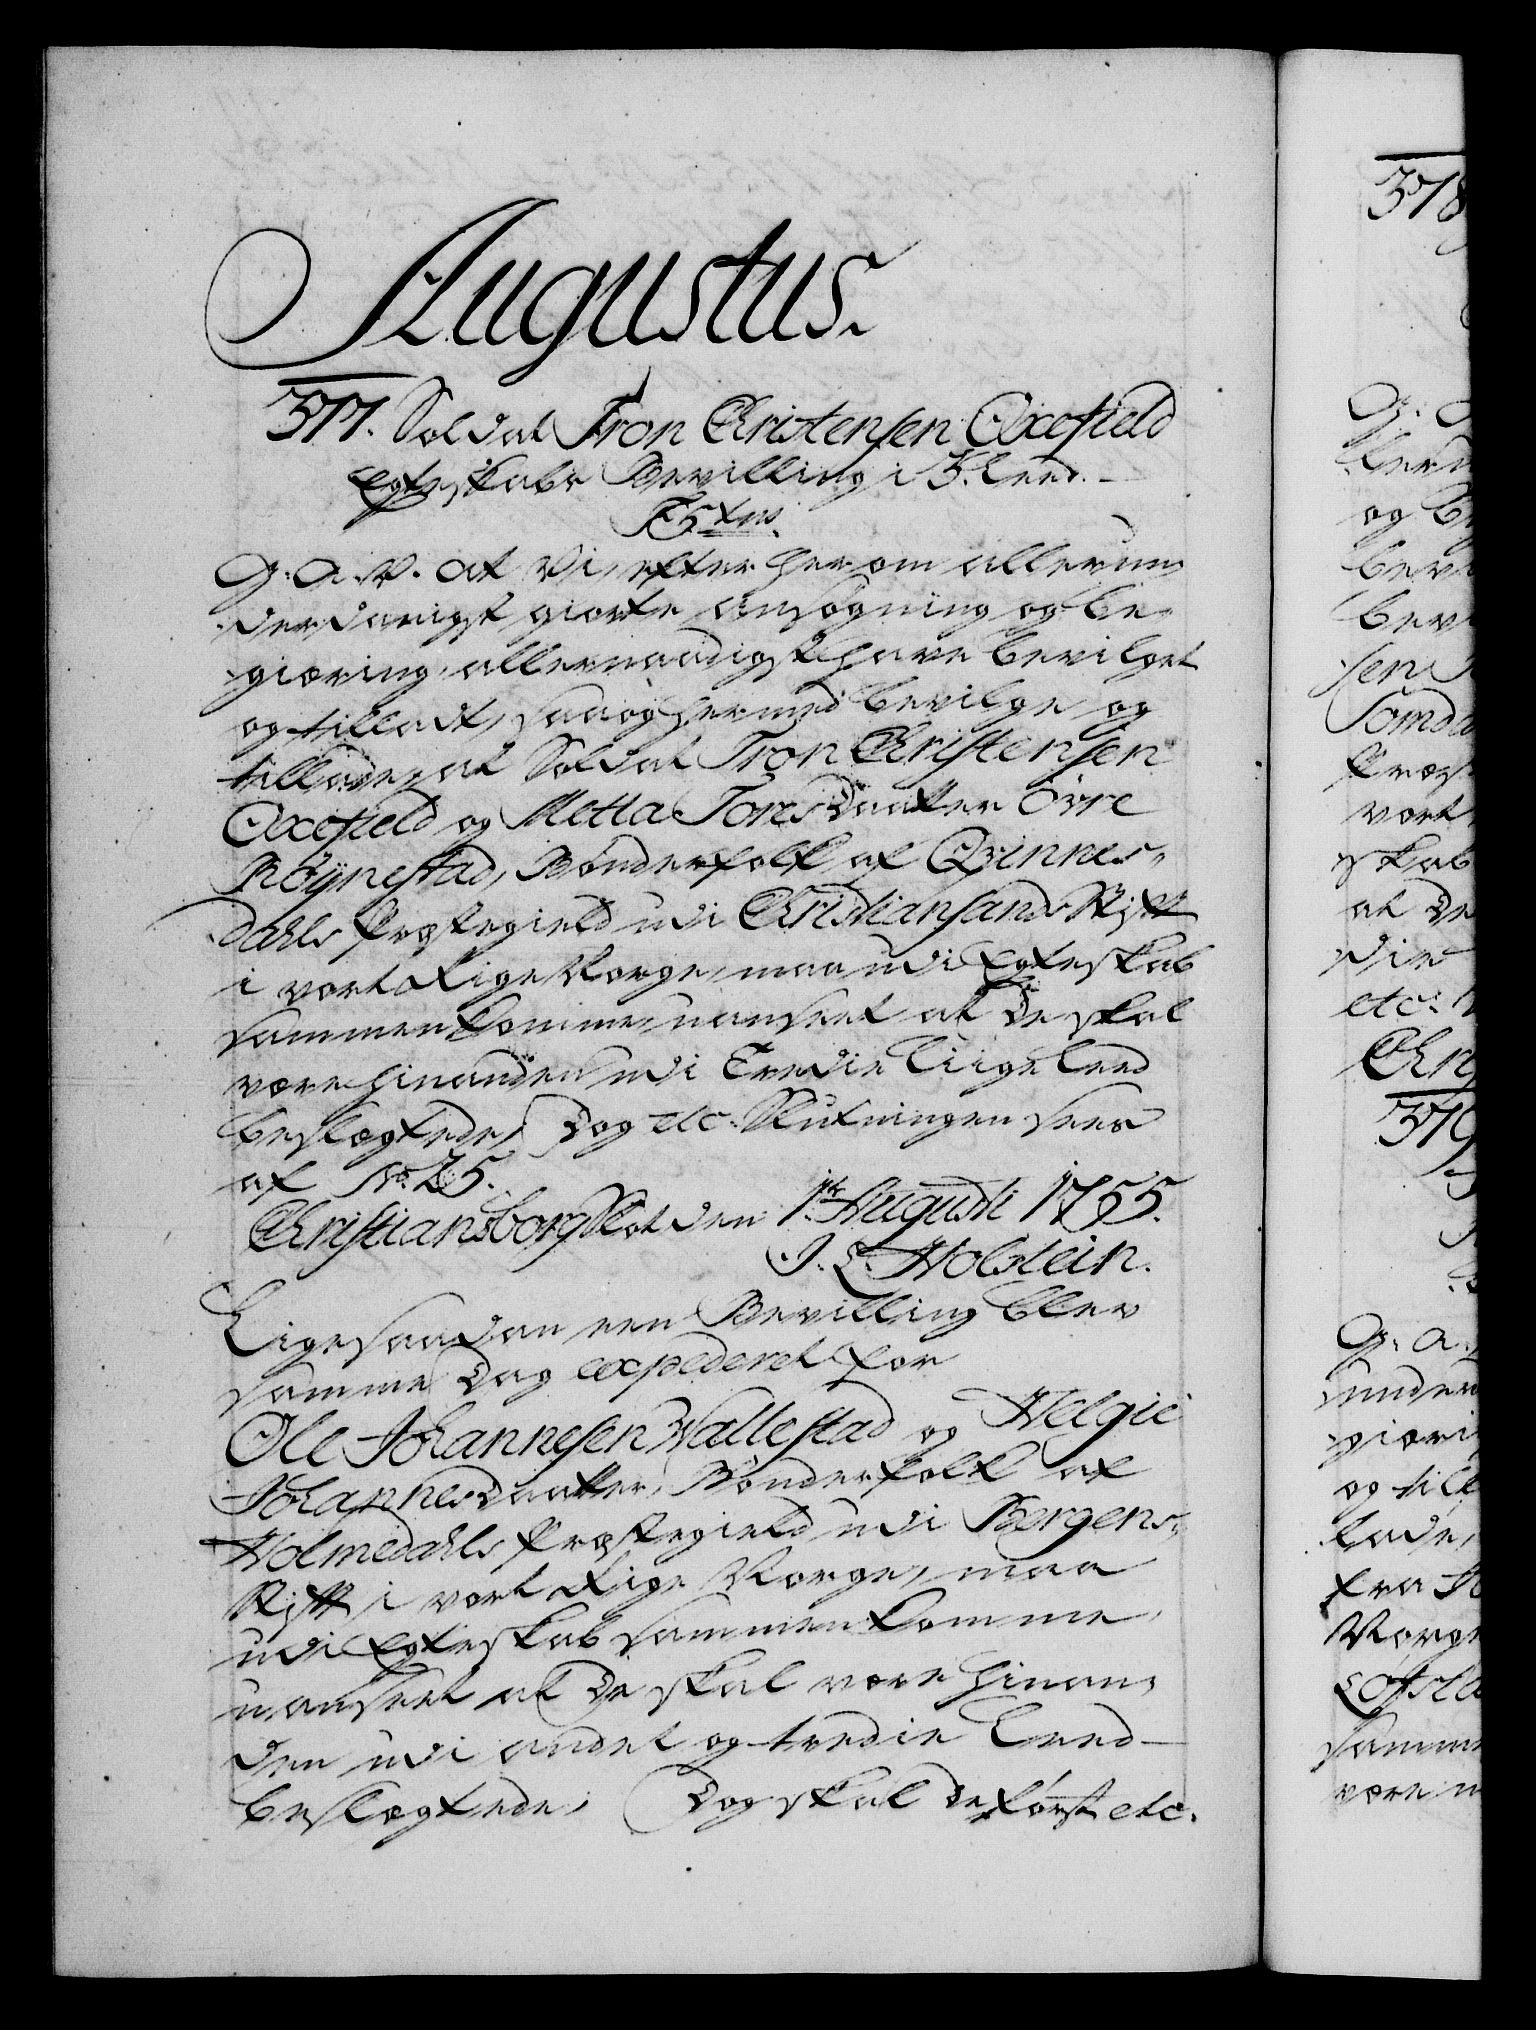 Augustus.
377. Soldat Tron Christensen Oxefield
Egteskabs Bevilling i 3. Leed.
F5tus.
G. A. V. at Vi, efter her om allerun,
derdanigst giorte ansøgning og be,
giæring, allernaadigst have bevilget
og tilladt, saa og hermed bevilge og
tillade, at Soldat Tron Christensen
Oxefield og Metta Toresdaatter Övre
Röÿnestad, Bønderfolk af Qvinnes,
dahls Præstegield udi Christiansands Stift
i vort Rige Norge, maa udi Egteskab
sammen komme, uanseet at De skal
være hinanden udi Tredie Liige Leed
beslægtede, Dog etc. Slutningen sees
af No 25.
Christiansborg Slot den 1te Augusti 1755.
J. L. Holstein.
Ligesaadan een Bevilling blev
samme Dag expederet for
Ole Johannesen Wallestad og Helgie
Johannesdaatter, Bønderfolk af
Holmedahls Præstegield udi Bergens,
Stift i vort Rige Norge, maa
udi Egteskab sammen komme,
uanseet at De skal være hinan,
den udi andet og tredie Leed
beslægtede, Dog skal De først etc.
378
G.
og
bev
bev
sen
Præst
vort
skab
at De
etc:
379
G. A.
under
giæri
og till
lade,
fra
Norge
samme
være